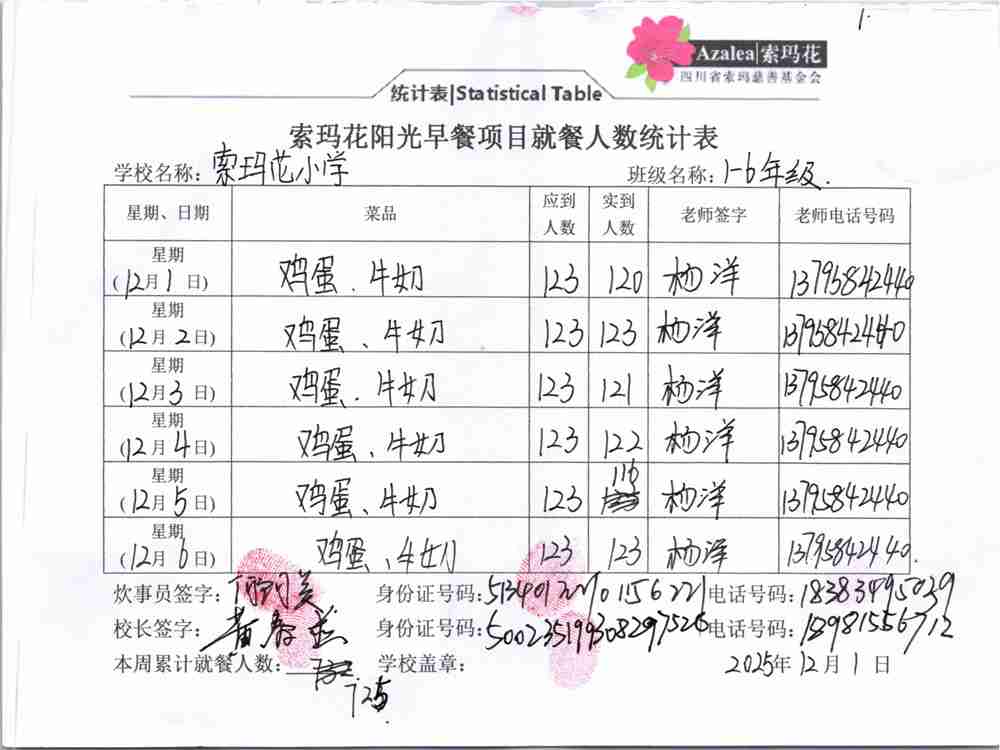 1.
Azalea|索玛花
四川省索玛慈善基金会
统计表|Statistical Table
索玛花阳光早餐项目就餐人数统计表
学校名称：索玛花小学 班级名称：1-6年级.
星期、日期 菜品 应到人数 实到人数 老师签字 老师电话号码
星期(12月1日) 鸡蛋、牛奶 123 120 杨洋 13795842440
星期(12月2日) 鸡蛋、牛奶 123 123 杨洋 13795842440
星期(12月3日) 鸡蛋、牛奶 123 121 杨洋 13795842440
星期(12月4日) 鸡蛋、牛奶 123 122 杨洋 13795842440
星期(12月5日) 鸡蛋、牛奶 123 116 杨洋 13795842440
星期(12月6日) 鸡蛋、牛奶 123 123 杨洋 13795842440.
炊事员签字： 身份证号码： 电话号码：18383495039
校长签字： 身份证号码：500235199308297526 电话号码：13981556712
本周累计就餐人数： 学校盖章： 2025年12月1日
725.